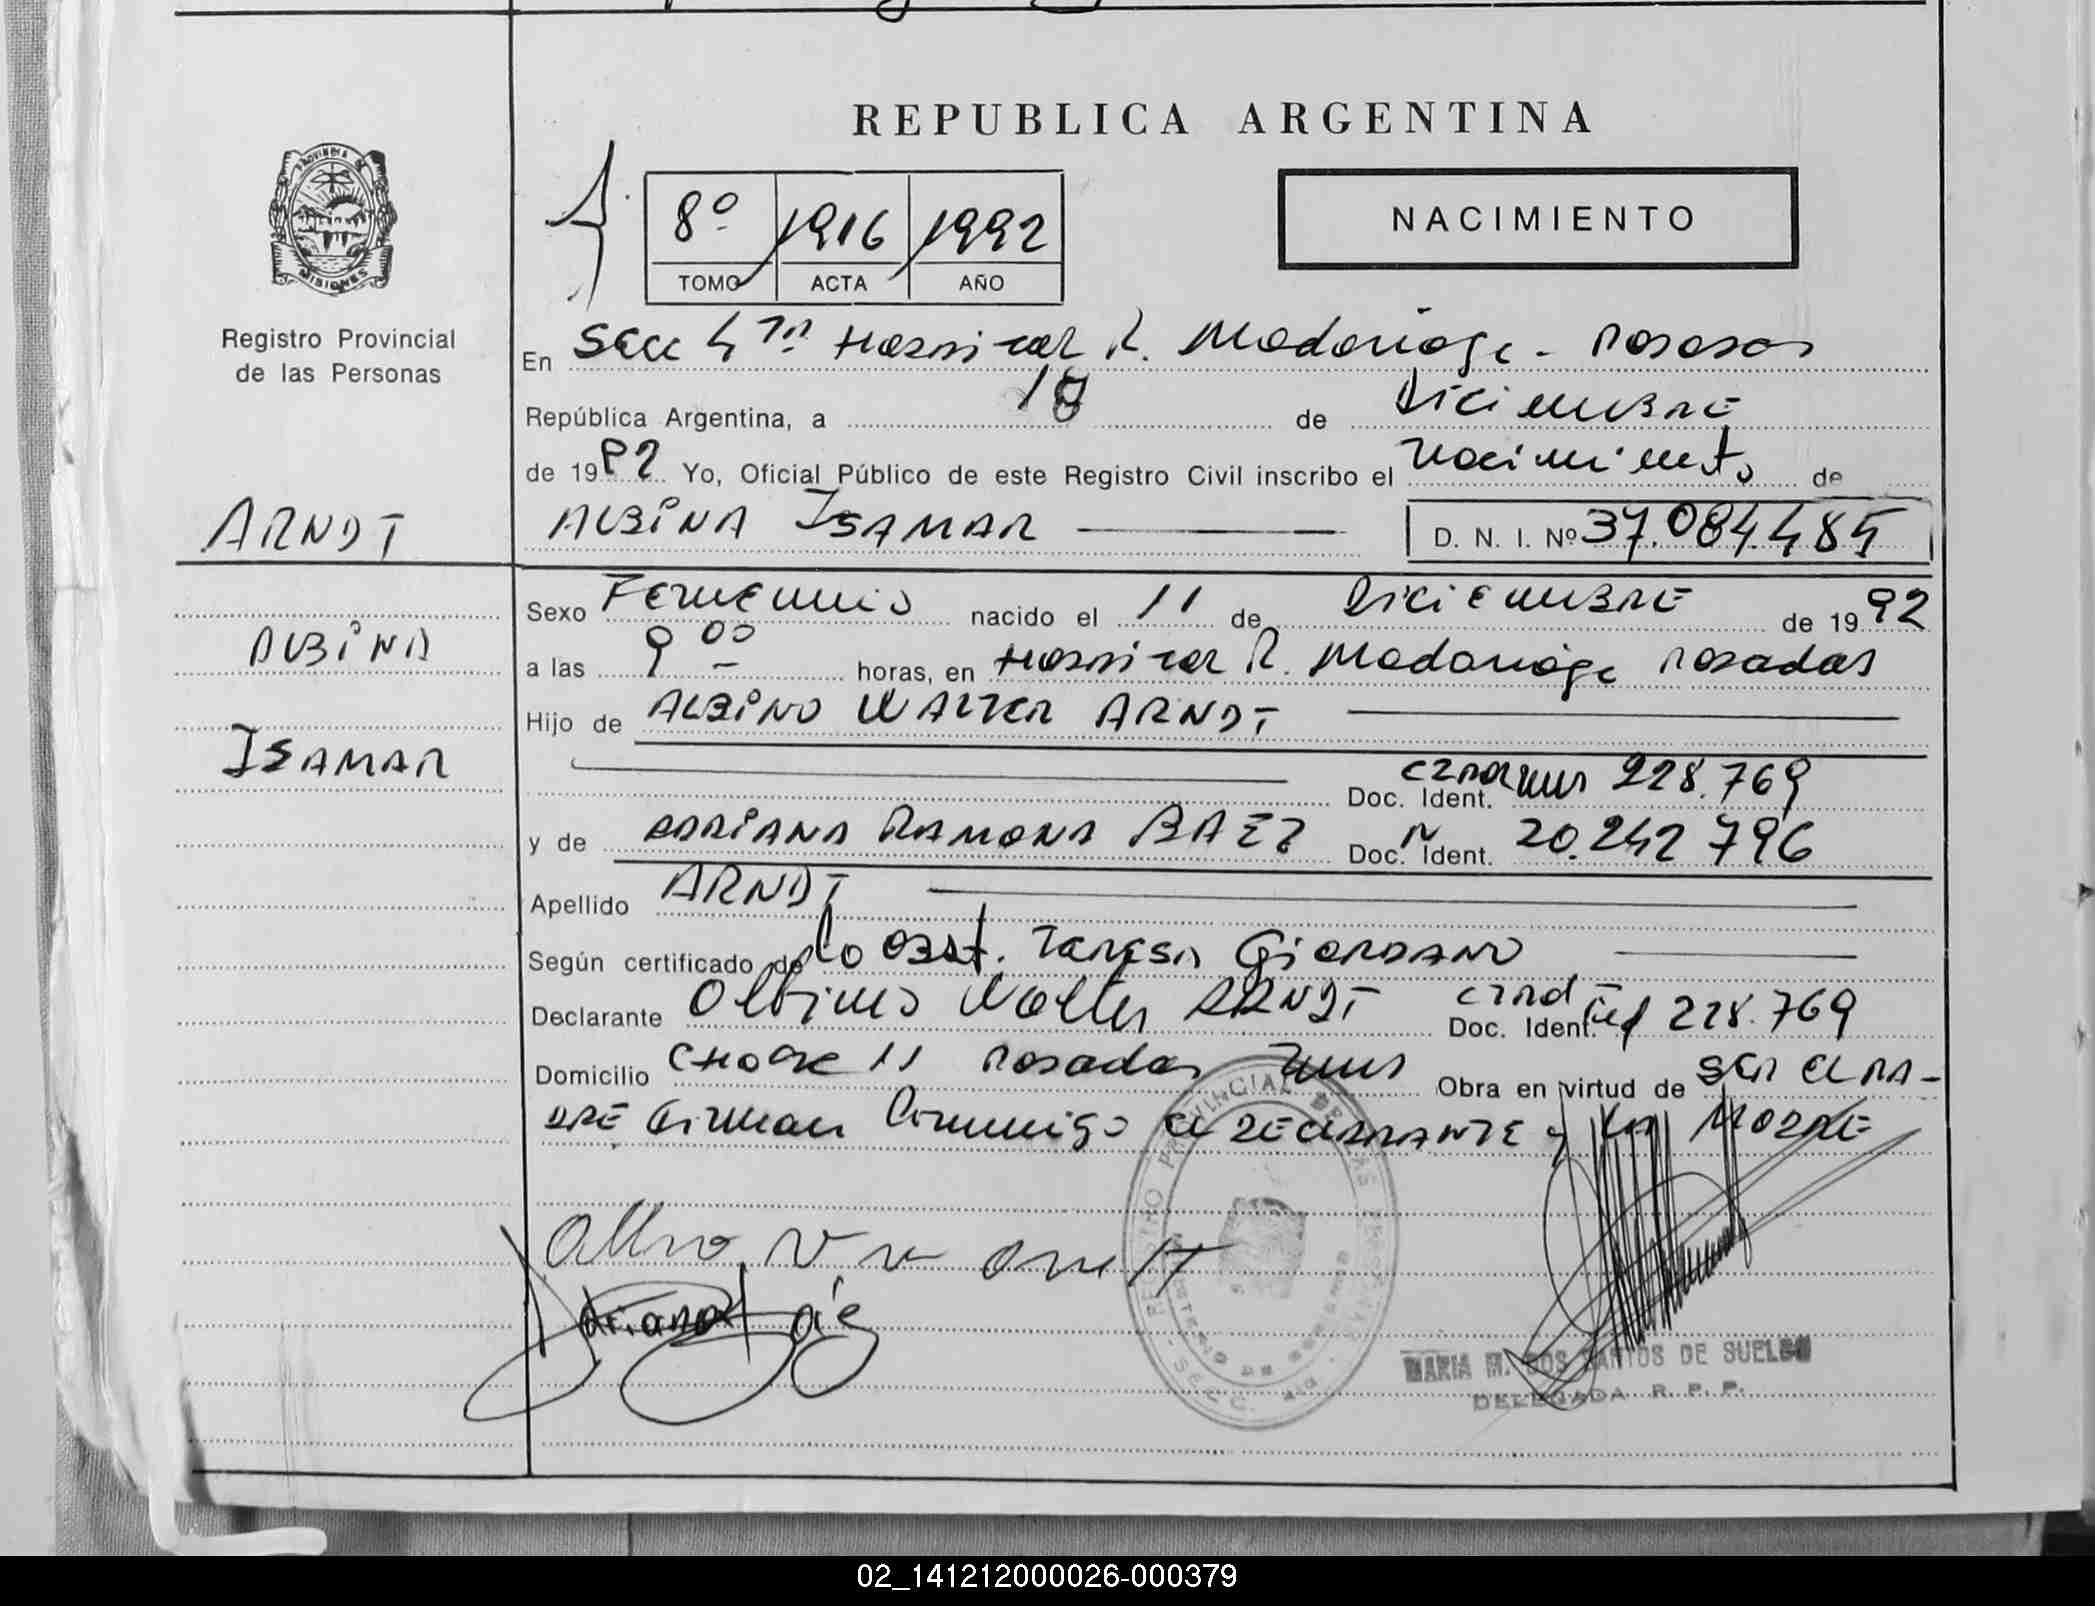 REPUBLICA ARGENTINA
PROVINCIA DE
MISIONES
Registro Provincial
de las Personas
8º 1916 1992
TOMO ACTA AÑO
NACIMIENTO
En Secc 4ta Hospital R. Madariaga - Posadas
República Argentina, a 18 de Diciembre
de 1992 Yo, Oficial Público de este Registro Civil inscribo el Nacimiento de
ARNDT
ALBINA ISAMAR D. N. I. Nº 37.084.485
ALBINA
ISAMAR
Sexo Femenino nacido el 11 de Diciembre de 1992
a las 9 00 horas, en Hospital R. Madariaga Posadas
Hijo de ALBINO WALTER ARNDT
Doc. Ident. 228.769
y de ADRIANA RAMONA BAEZ Doc. Ident. 20.242 796
Apellido ARNDT
Según certificado de la Obst. Teresa Giordano
Declarante Albino Walter ARNDT Doc. Ident. 228.769
Domicilio Chacra 11 Posadas Mnes Obra en virtud de ser el pa-
dre firman conmigo el DECLARANTE y la Madre
Adriana Baez
REGISTRO PROVINCIAL DE LAS PERSONAS
MINISTERIO DE GOBIERNO
SECC. 4ta
MARIA M. DOS SANTOS DE SUELDO
DELEGADA R. P. P.
02_141212000026-000379